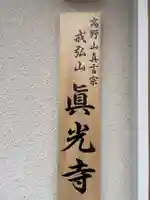 高野山真言宗
戒弘山
眞光寺